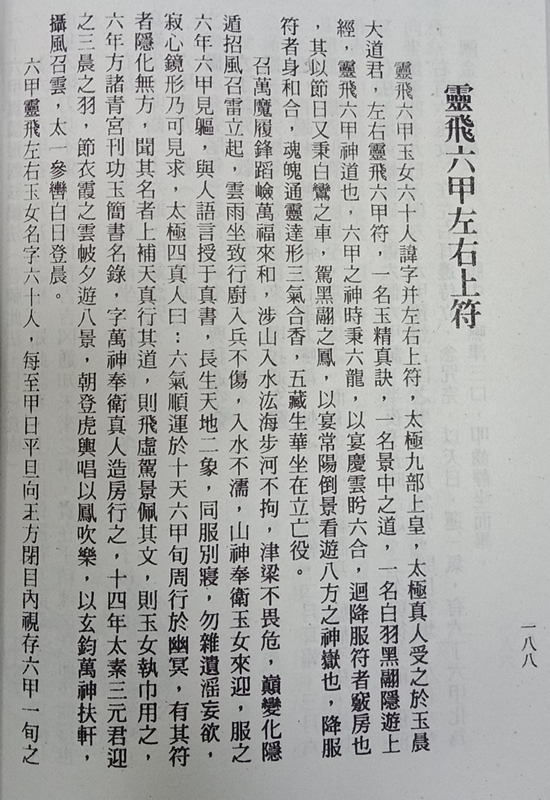 靈飛六甲左右上符
靈飛六甲玉女六十人諱字并左右上符，太極九部上皇，太極真人受之於玉晨
大道君，左右靈飛六甲符，一名玉精真訣，一名景中之道，一名白羽黑翮隱遊上
經，靈飛六甲神道也，六甲之神時乘六龍，以宴慶雲眄六合，迴降服符者竅房也
，其以節日又乘白鸞之車，駕黑翮之鳳，以宴常陽倒景看遊八方之神嶽也，降服
符者身和合，魂魄通靈達形三氣合香，五藏生華坐在立亡役。
召萬魔履鋒蹈嶮萬福來和，涉山入水泫海步河不拘，津梁不畏危，巔變化隱
遁招風召雷立起，雲雨坐致行廚入兵不傷，入水不濡，山神奉衛玉女來迎，服之
六年六甲見軀，與人語言授于真書，長生天地二象，同服別寢，勿雜遺滛妄欲，
寂心鏡形乃可見求，太極四真人曰：六氣順運於十天六甲旬周行於幽冥，有其符
者隱化無方，聞其名者上補天真行其道，則飛虛駕景佩其文，則玉女執巾用之，
六年方諸青宮刊功玉簡書名錄，字萬神奉衛真人造房行之，十四年太素三元君迎
之三晨之羽，節衣霞之雲帔夕遊八景，朝登虎輿唱以鳳吹樂，以玄鈞萬神扶軒，
攝風召雲，太一參轡白日登晨。
六甲靈飛左右玉女名字六十人，每至甲日平旦向王方閉目內視存六甲一旬之
一八八